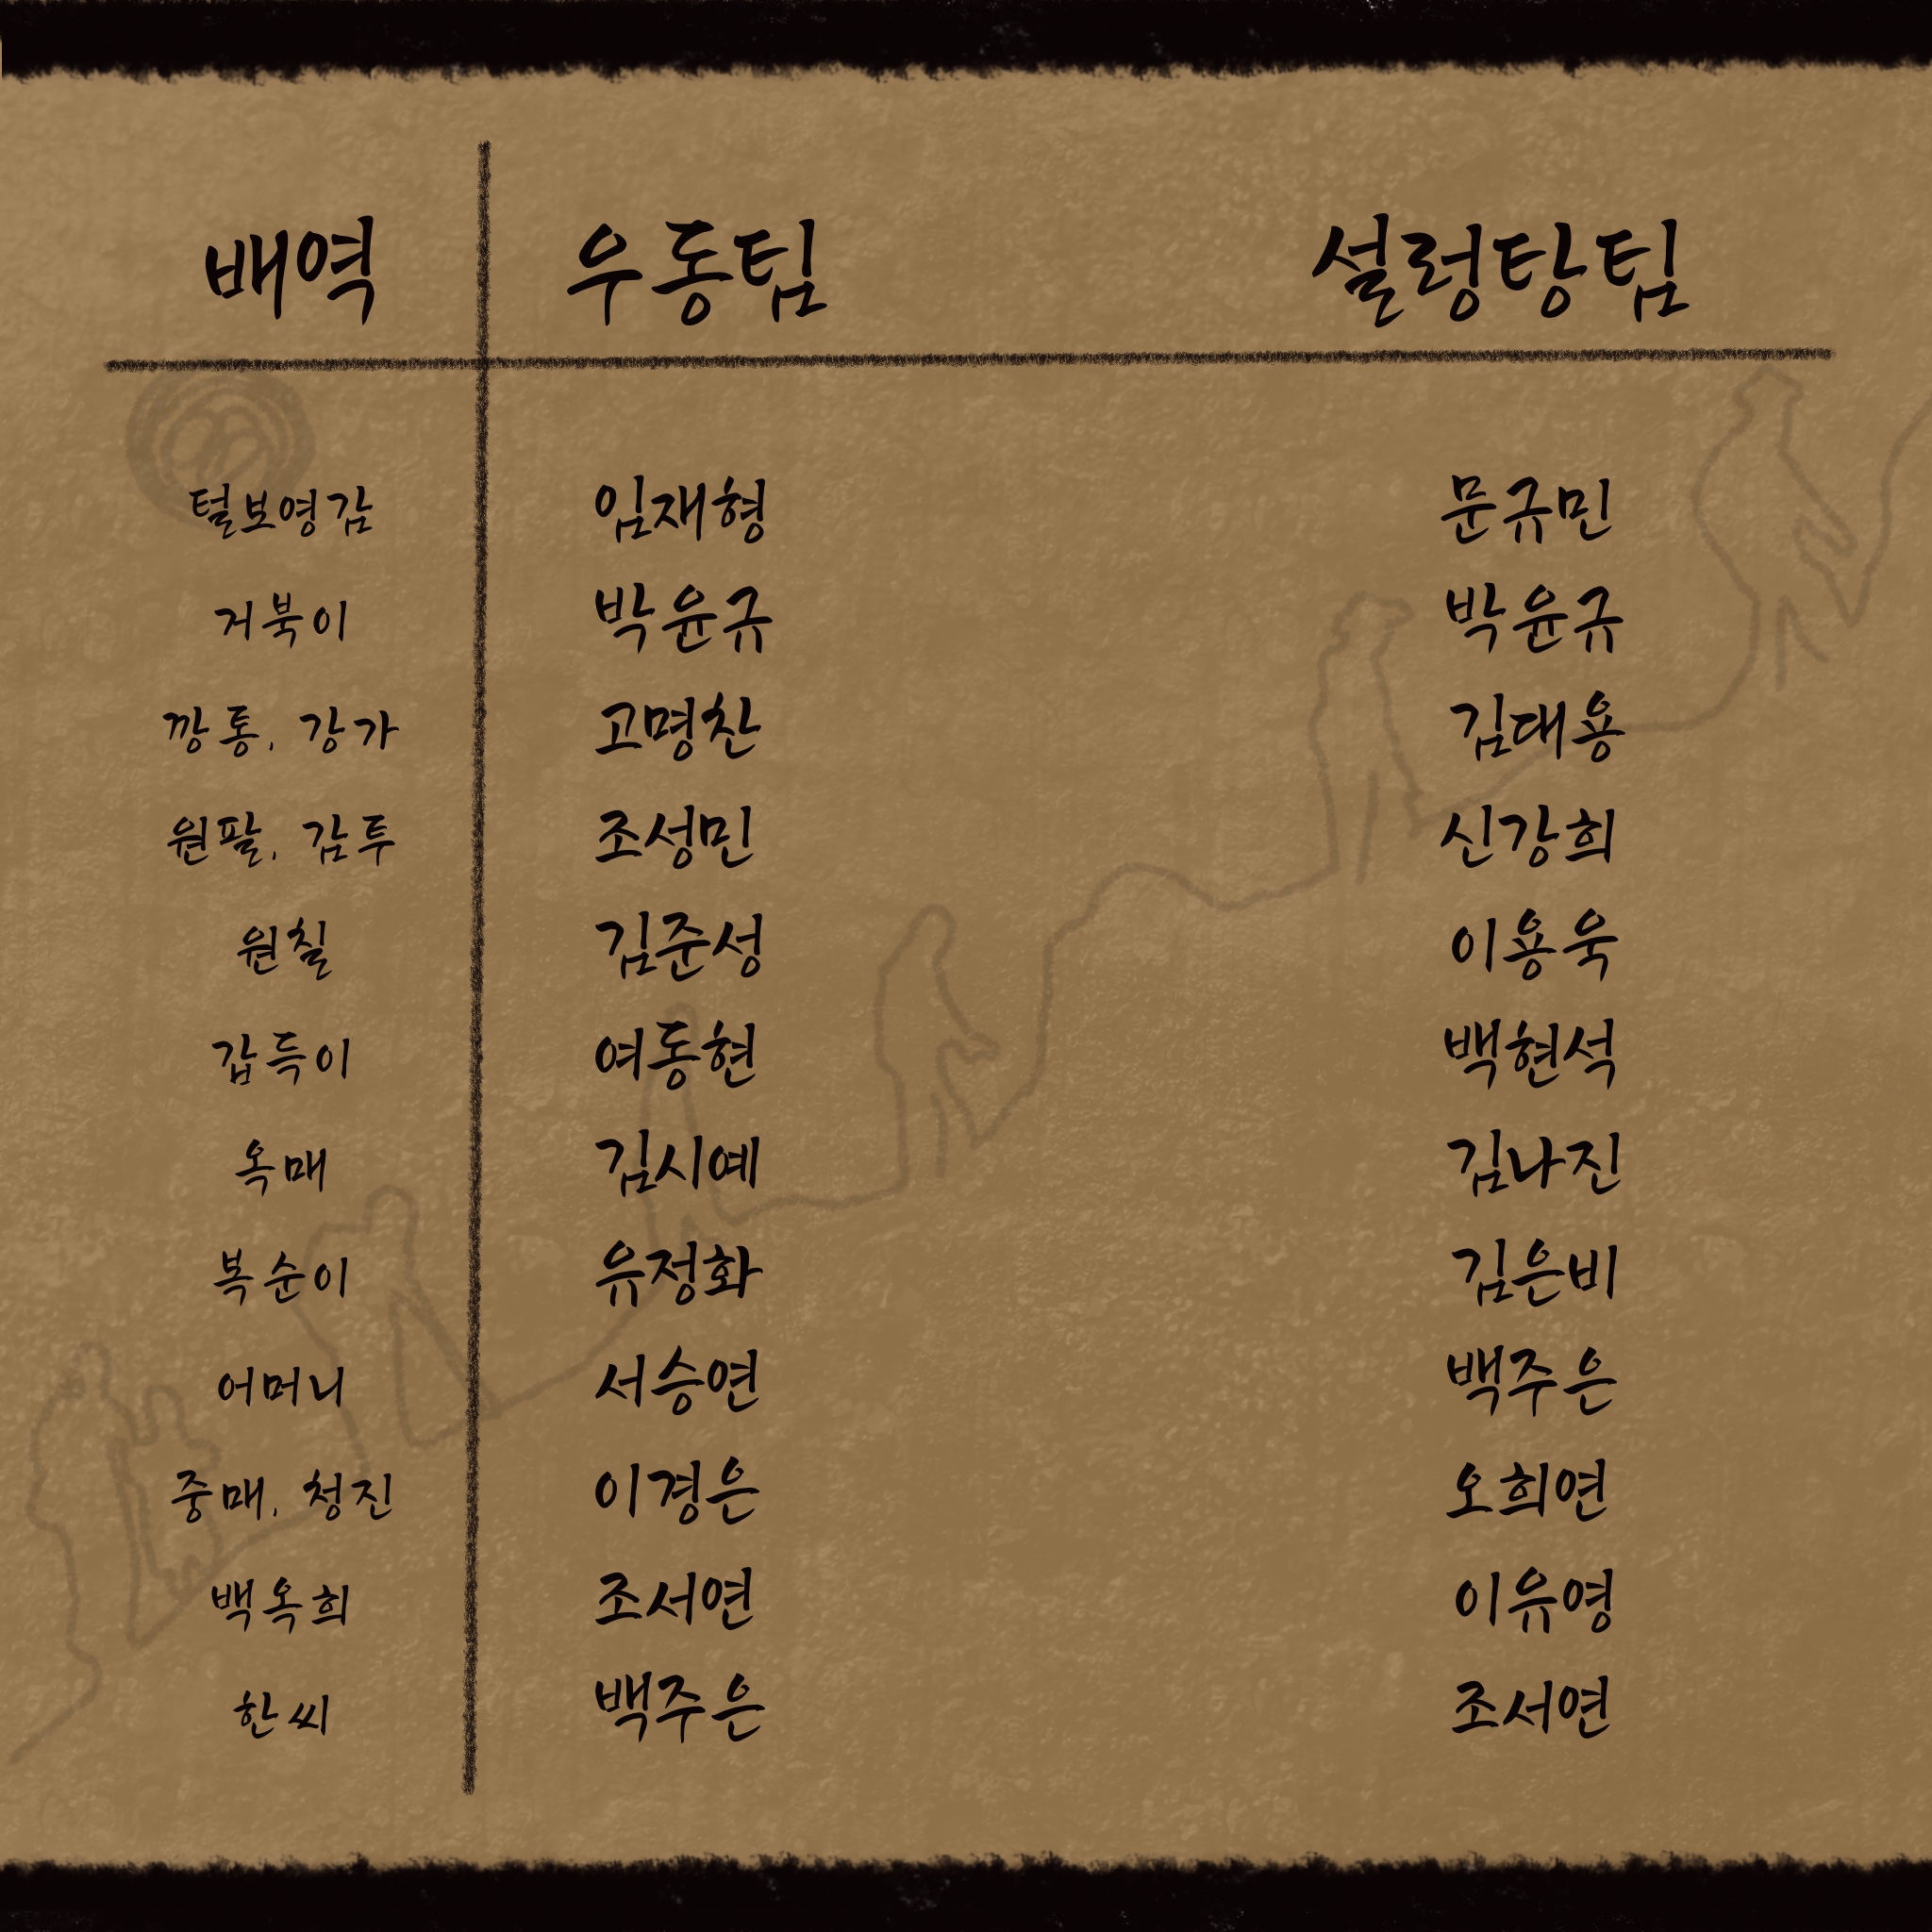 배역 우동팀 설렁탕팀
털보영감 임재형 문규민
거북이 박윤규 박윤규
깡통, 강가 고명찬 김대용
원팔, 감투 조성민 신강희
원칠 김준성 이용욱
갑득이 여동현 백현석
옥매 김시예 김나진
복순이 유정화 김은비
어머니 서승연 백주은
중매, 청진 이경은 오희연
백옥희 조서연 이유영
한씨 백주은 조서연